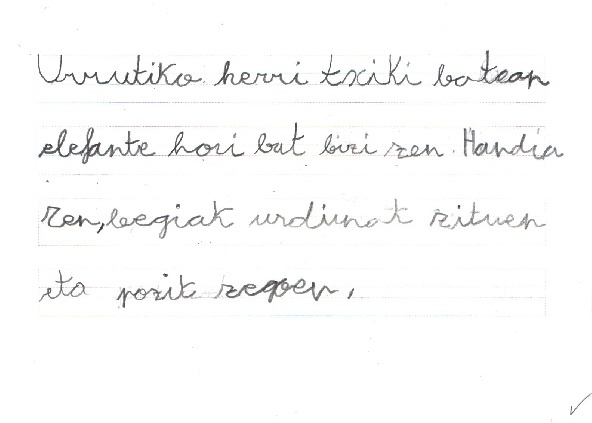 Urrutiko herri txiki batean
elefante hori bat bizi zen. Handia
zen, begiak urdinak zituen
eta pozik zegoen.